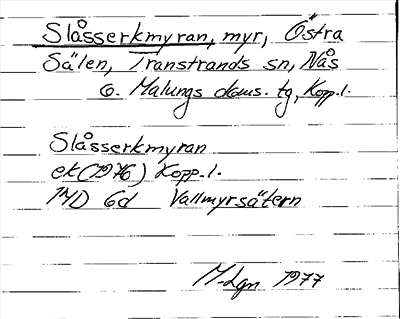 Slåsserkmyran, myr, Östra
Sälen, Transtrands sn, Nås
o. Malungs doms. tg, Kopp. l.
Slåsserkmyran
ek (1976) Kopp. l.
14D 6d Vallmyrsätern
M-Lgn 1977